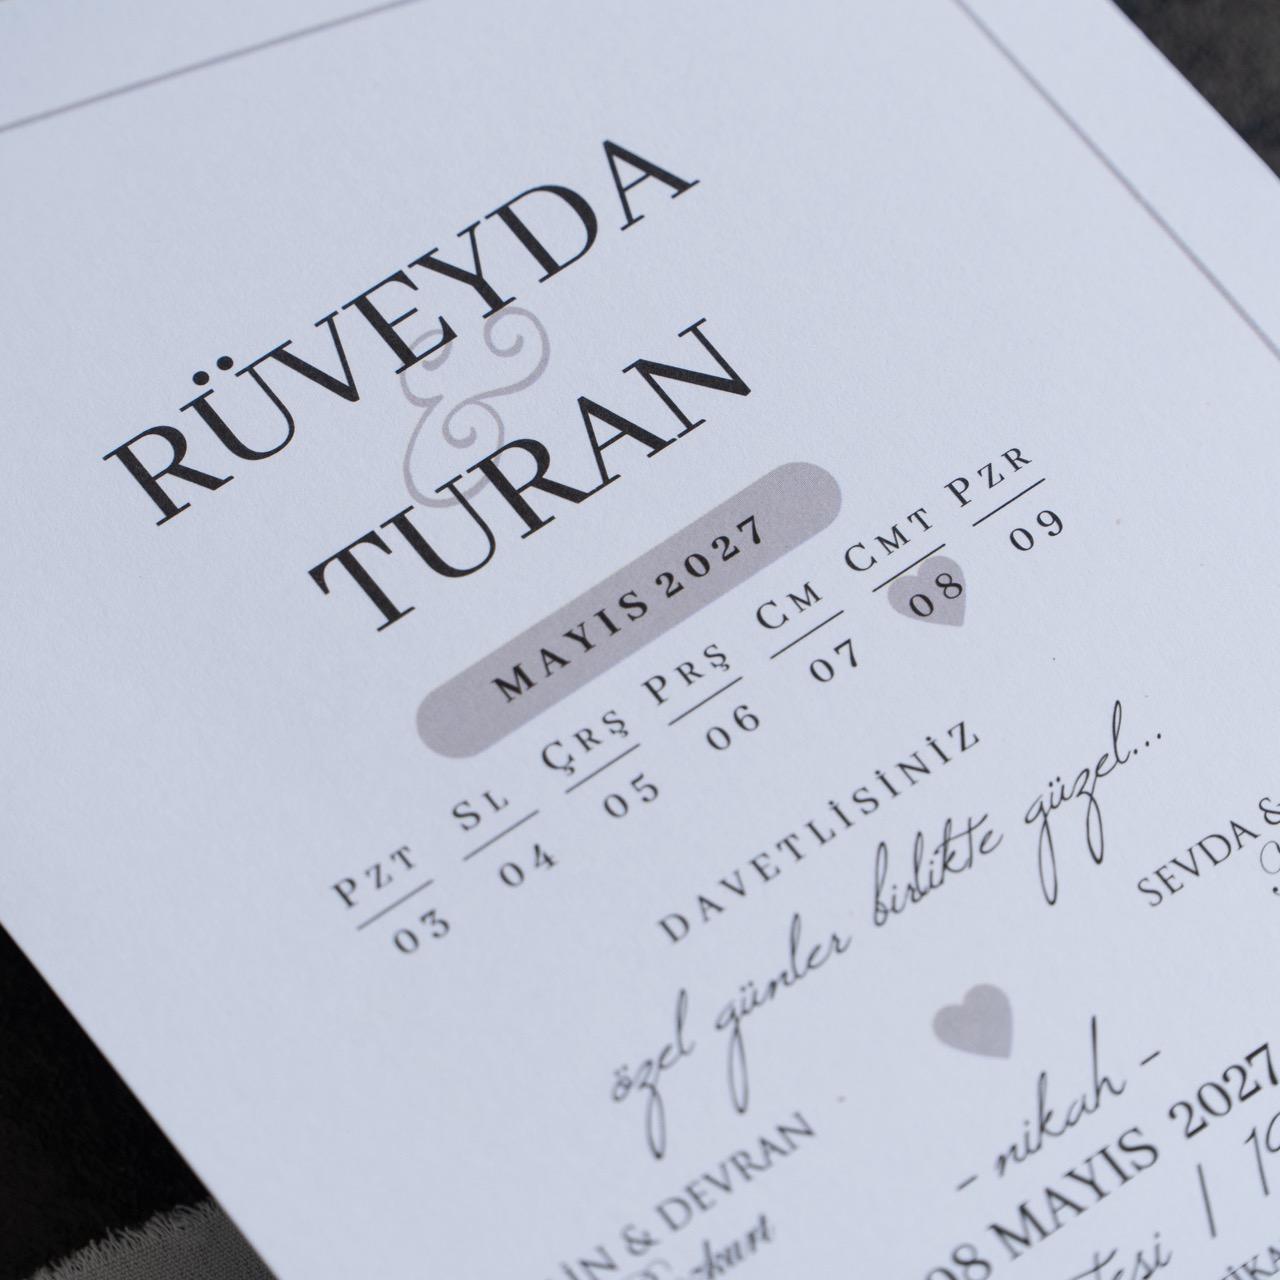 RÜVEYDA
&
TURAN
MAYIS 2027
PZT SL ÇRŞ PRŞ CM CMT PZR
03 04 05 06 07 08 09
DAVETLİSİNİZ
özel günler birlikte güzel...
SEVDA &
& DEVRAN
- nikah -
08 MAYIS 2027